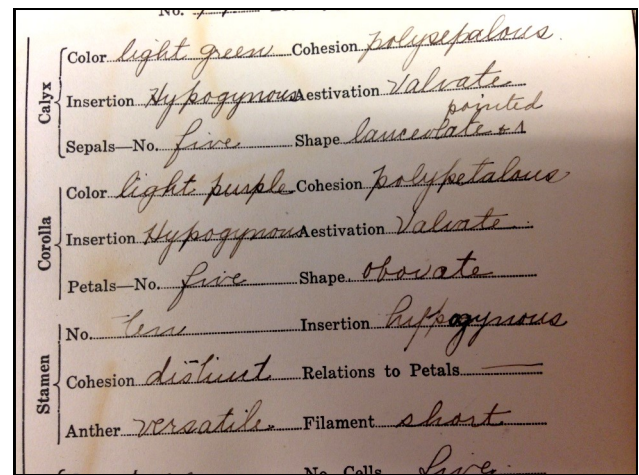 No.
Calyx
Color light green Cohesion polysepalous
Insertion Hypogynous Aestivation Valvate
pointed
Sepals—No. five Shape lanceolate &
Corolla
Color light purple Cohesion polypetalous
Insertion Hypogynous Aestivation Valvate
Petals—No. five Shape obovate
Stamen
No. ten Insertion hypogynous
Cohesion distinct Relations to Petals —
Anther versatile. Filament short
No. Cells five